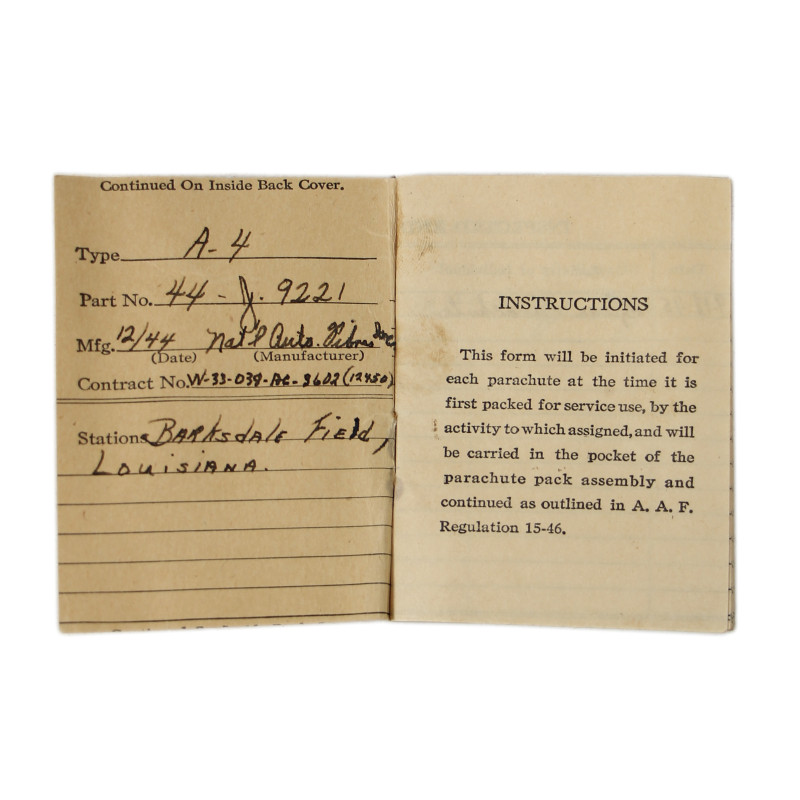 Continued On Inside Back Cover.
Type A-4
Part No. 44-J. 9221
Mfg. 12/44 Nat'l Auto. Fibres Inc.
(Date) (Manufacturer)
Contract No. W-33-039-AC-3602 (12450)
Stations Barksdale Field,
Louisiana.
INSTRUCTIONS
This form will be initiated for
each parachute at the time it is
first packed for service use, by the
activity to which assigned, and will
be carried in the pocket of the
parachute pack assembly and
continued as outlined in A. A. F.
Regulation 15-46.